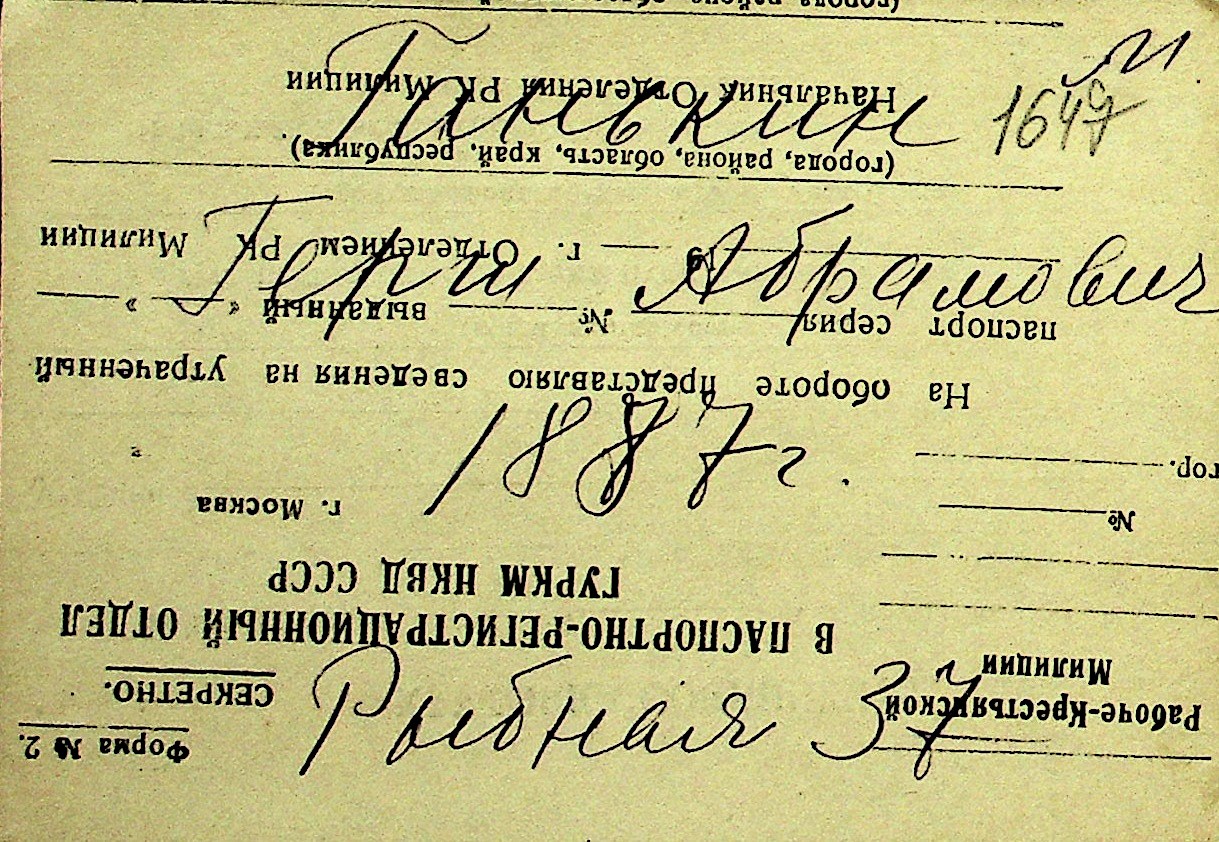 Ганькин
Герш Абрамович
1887 г.
Рыбная 37
Форма № 2.
СЕКРЕТНО.
Рабоче-Крестьянской
Милиции
В ПАСПОРТНО-РЕГИСТРАЦИОННЫЙ ОТДЕЛ
ГУРКМ НКВД СССР
№
г. Москва
гор. "
На обороте представляю сведения на утраченный
паспорт серия № выданный « »
19 г. Отделением РК Милиции
(города, района, область, край, республика).
Начальник Отделения РК Милиции
(города района